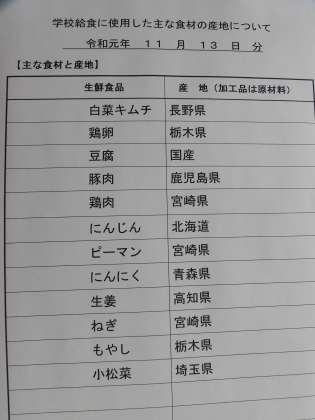 学校給食に使用した主な食材の産地について
令和元年 11 月 13 日 分
【主な食材と産地】
生鮮食品 産 地（加工品は原材料）
白菜キムチ 長野県
鶏卵 栃木県
豆腐 国産
豚肉 鹿児島県
鶏肉 宮崎県
にんじん 北海道
ピーマン 宮崎県
にんにく 青森県
生姜 高知県
ねぎ 宮崎県
もやし 栃木県
小松菜 埼玉県